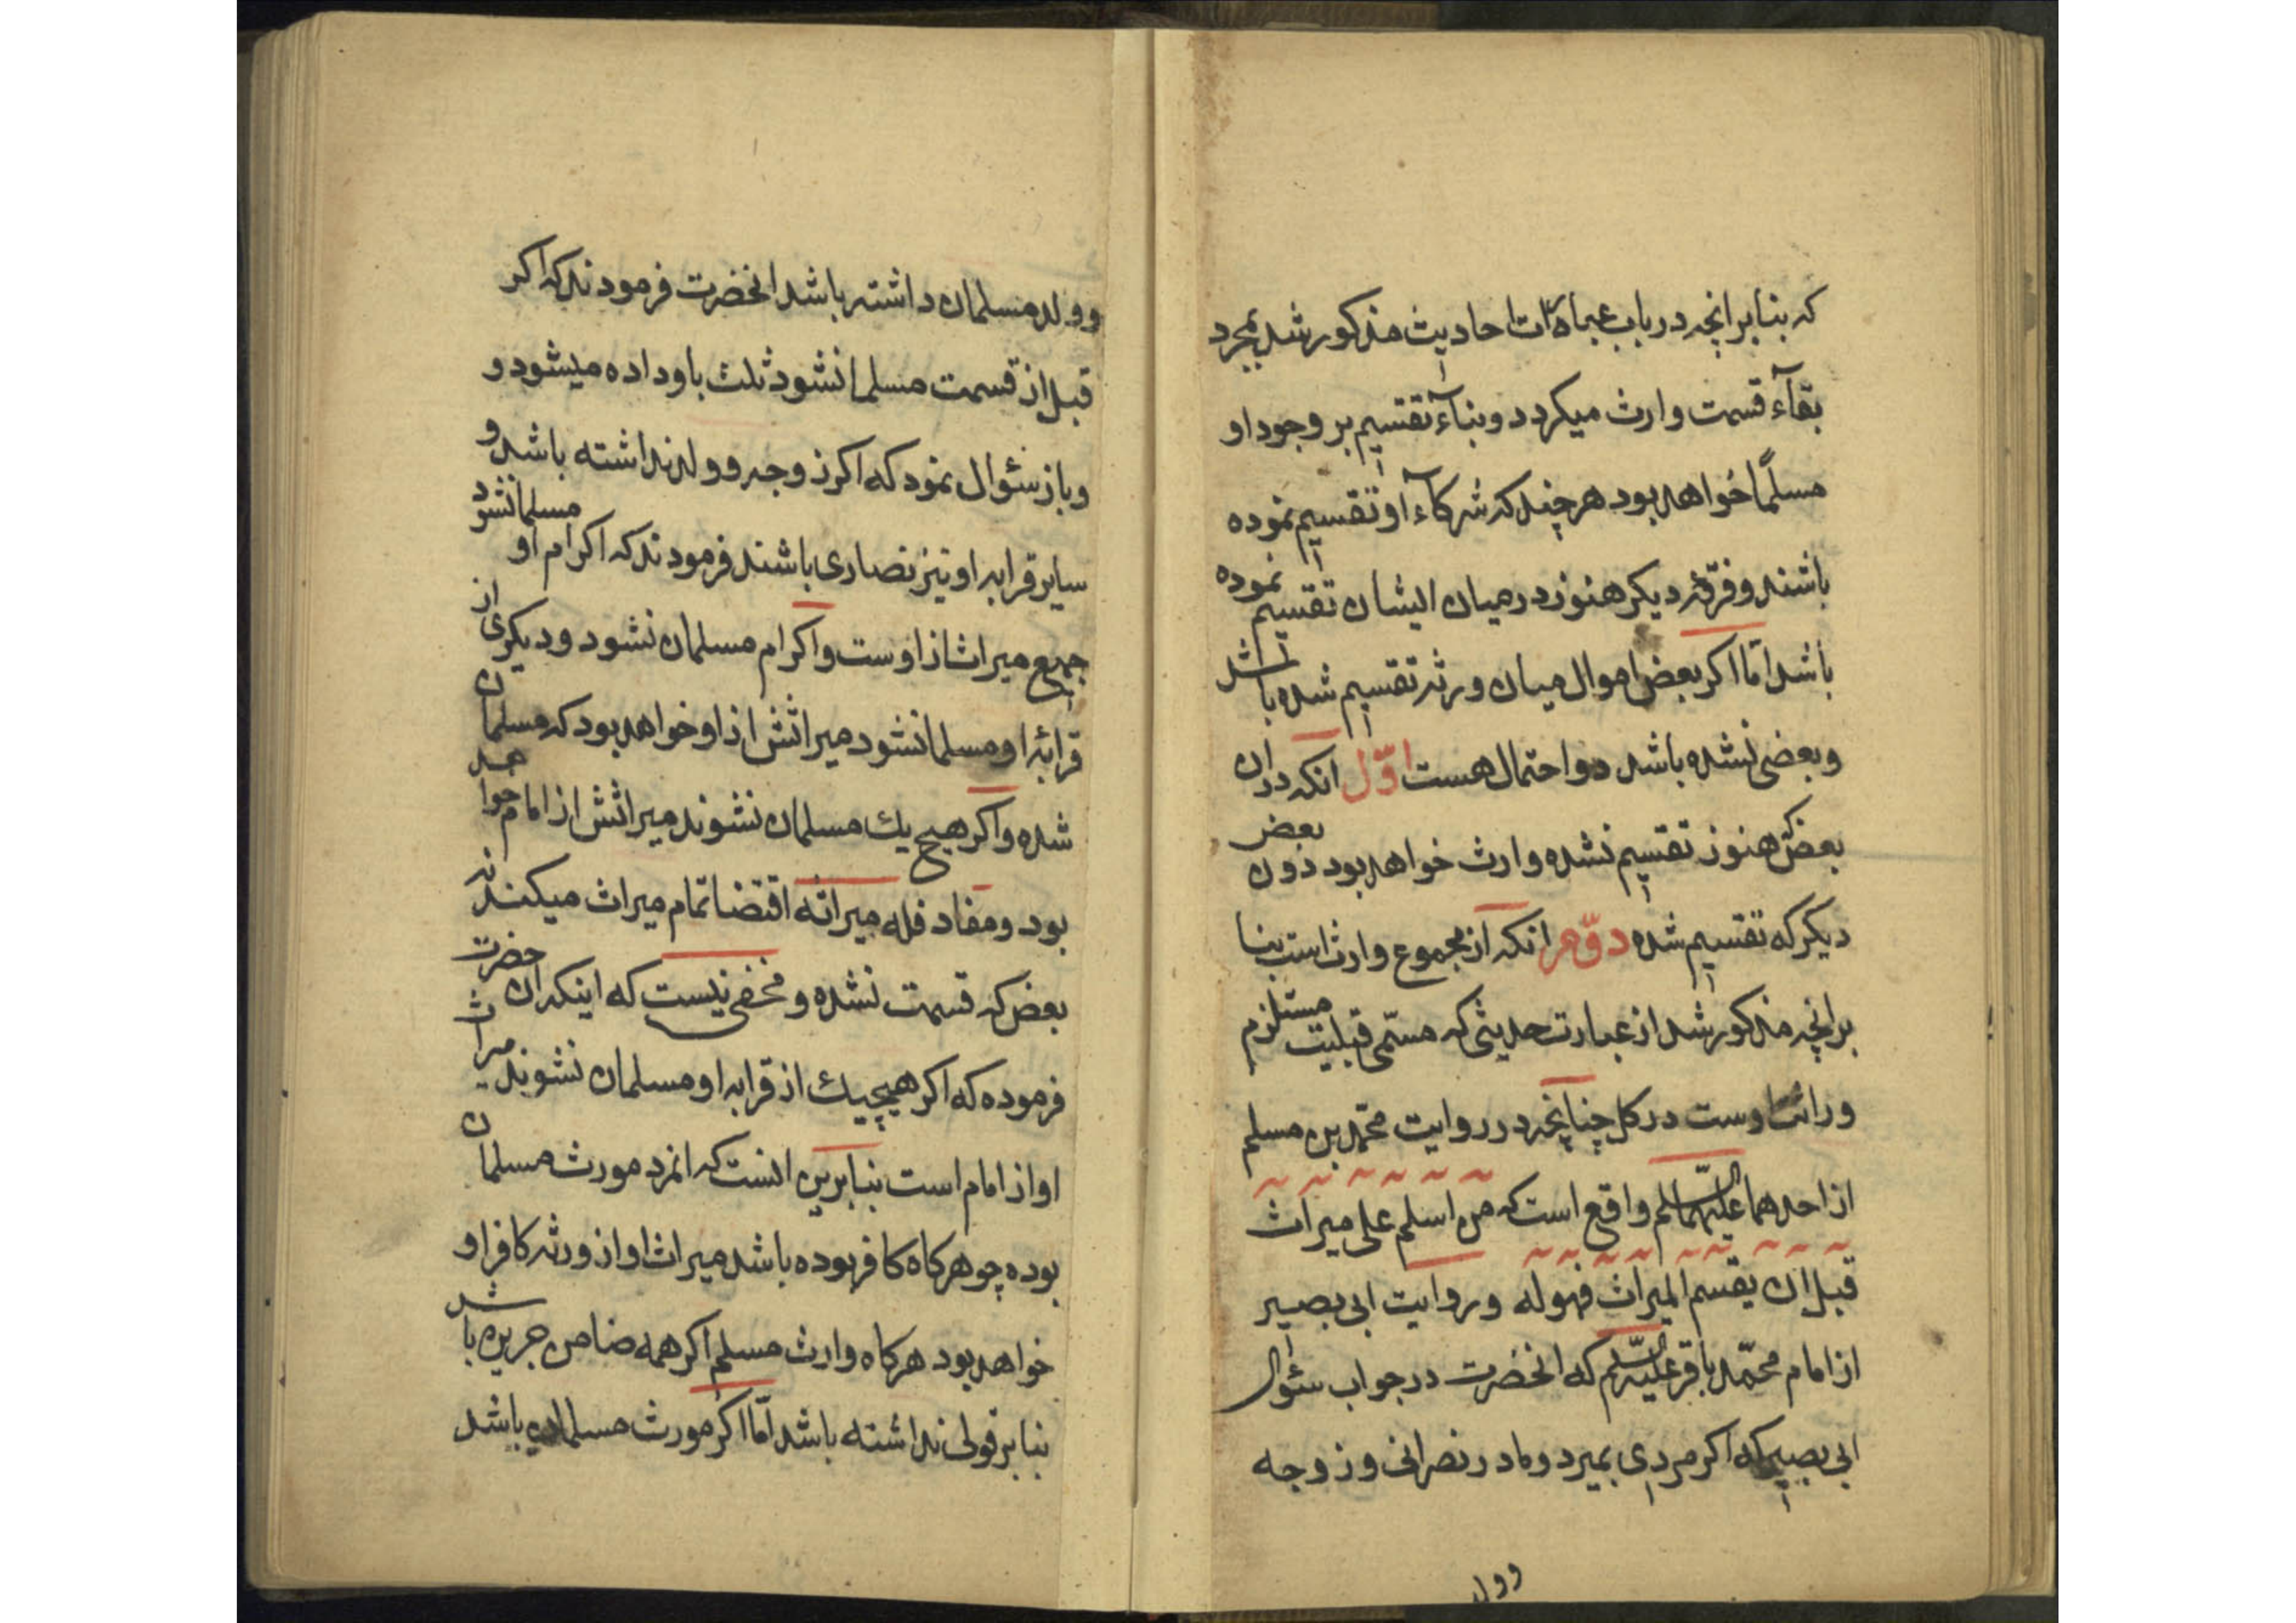 که بنابر انچه در باب عبارات احادیث مذکور شد بمجرد
بقآء قسمت وارث میکردد و بنآء تقسیم بر وجود او
مسلماً خواهد بود هر چند که شرکآء او تقسیم نموده
باشند و فرقهٔ دیکر هنوز در میان ایشان تقسیم نموده
باشد امّا اکر بعض اموال میان ورثه تقسیم شده باشد
و بعضی نشده باشد دو احتمال هست اوّل انکه در ان
بعض که هنوز تقسیم نشده وارث خواهد بود دون بعض
دیکر که تقسیم شده دوّم انکه از مجموع وارث است بنا
بر انچه مذکور شد از عبارت حدیثی که مسمّی قبلیت مستلزم
وراثت اوست در کل چنانچه در روایت محمّد بن مسلم
از احدهما علیهما السّلم واقع است که من اسلم علی میراث
قبل ان یقسم المیراث فهو له و روایت ابی بصیر
از امام محمّد باقر علیه السّلم که انحضرت در جواب سئوال
ابی بصیر که اکر مردی بمیرد و مادر نصرانی و زوجه
وول
و ولد مسلمان داشته باشد انحضرت فرمودند که اکر
قبل از قسمت مسلمانشود ثلث باو داده میشود و
و باز سئوال نمود که اکر زوجه و ولد نداشته باشد و
سایر قرابه او نیز نصاری باشند فرمودند که اکر ام او مسلمانشود
جمیع میراث از اوست و اکر ام مسلمان نشود و دیکری از
قرابهٔ او مسلمانشود میراثش از او خواهد بود که مسلمان
شده و اکر هیچ یك مسلمان نشوند میراثش از امام خواهد
بود و مفاد فله میراثه اقتضا تمام میراث میکند نه
بعض که قسمت نشده و مخفی نیست که اینکه ان حضرت
فرموده که اکر هیچیك از قرابه او مسلمان نشوند میراث
او از امام است بنابرین انست که انمرد مورث مسلمان
بوده چو هرکاه کافر بوده باشد میراث او از ورثه کافر او
خواهد بود هرکاه وارث مسلم اکر همه ضامن جریره باشد
بنابر قولی نداشته باشد امّا اکر مورث مسلمان باشد